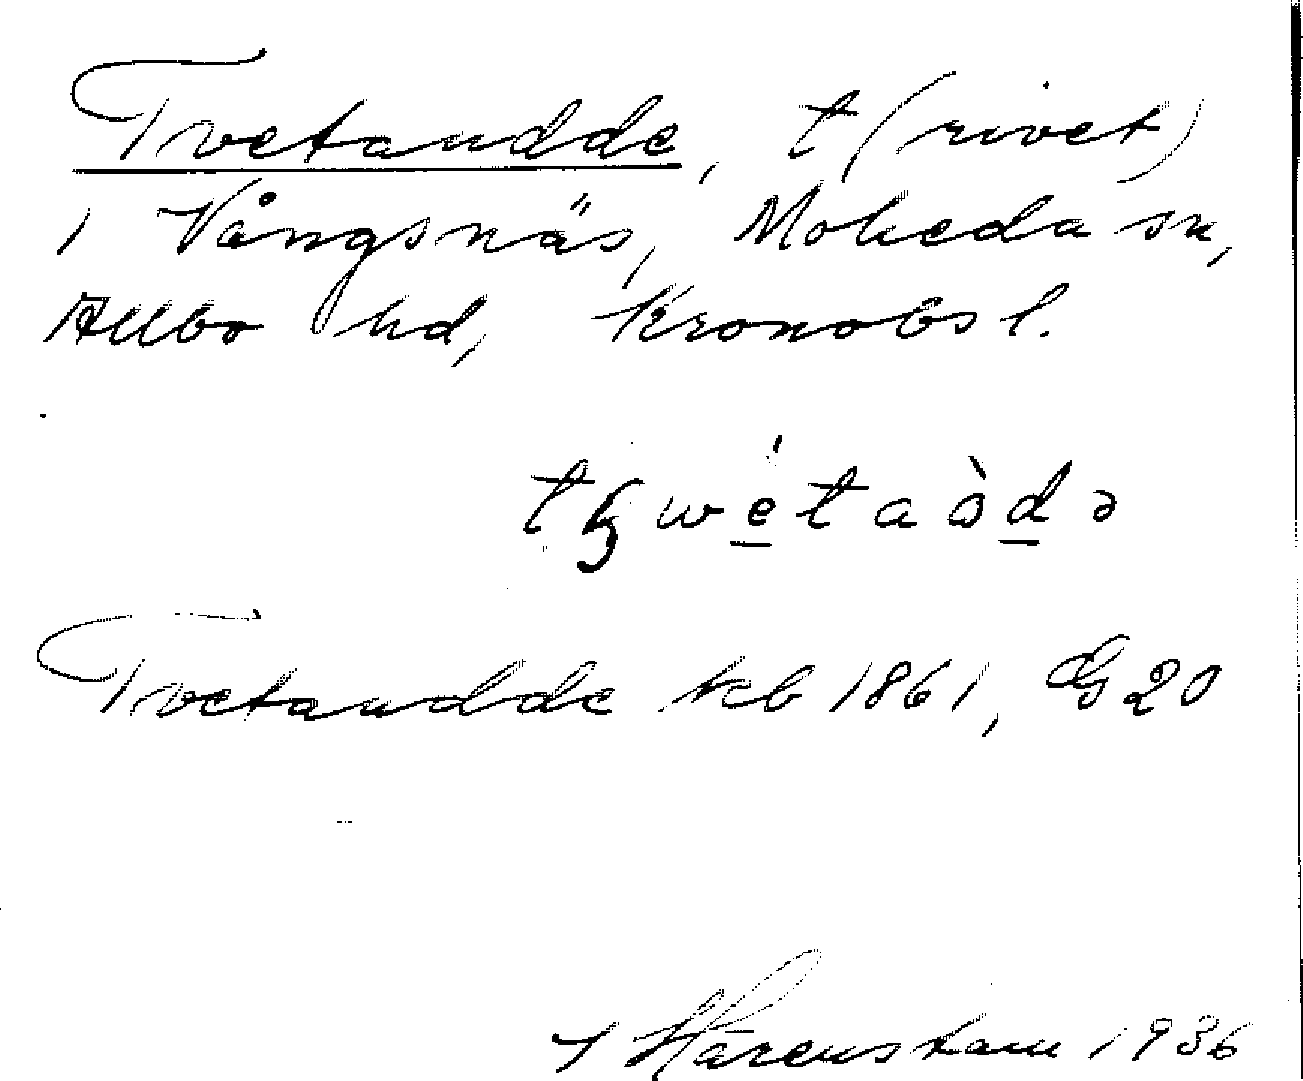 Tvetaudde, t (rivet)
i Vångsnäs, Moheda sn,
Allbo hd, Kronobs l.
Tvetaudde kb 1861, G 20
Härenstam 1936